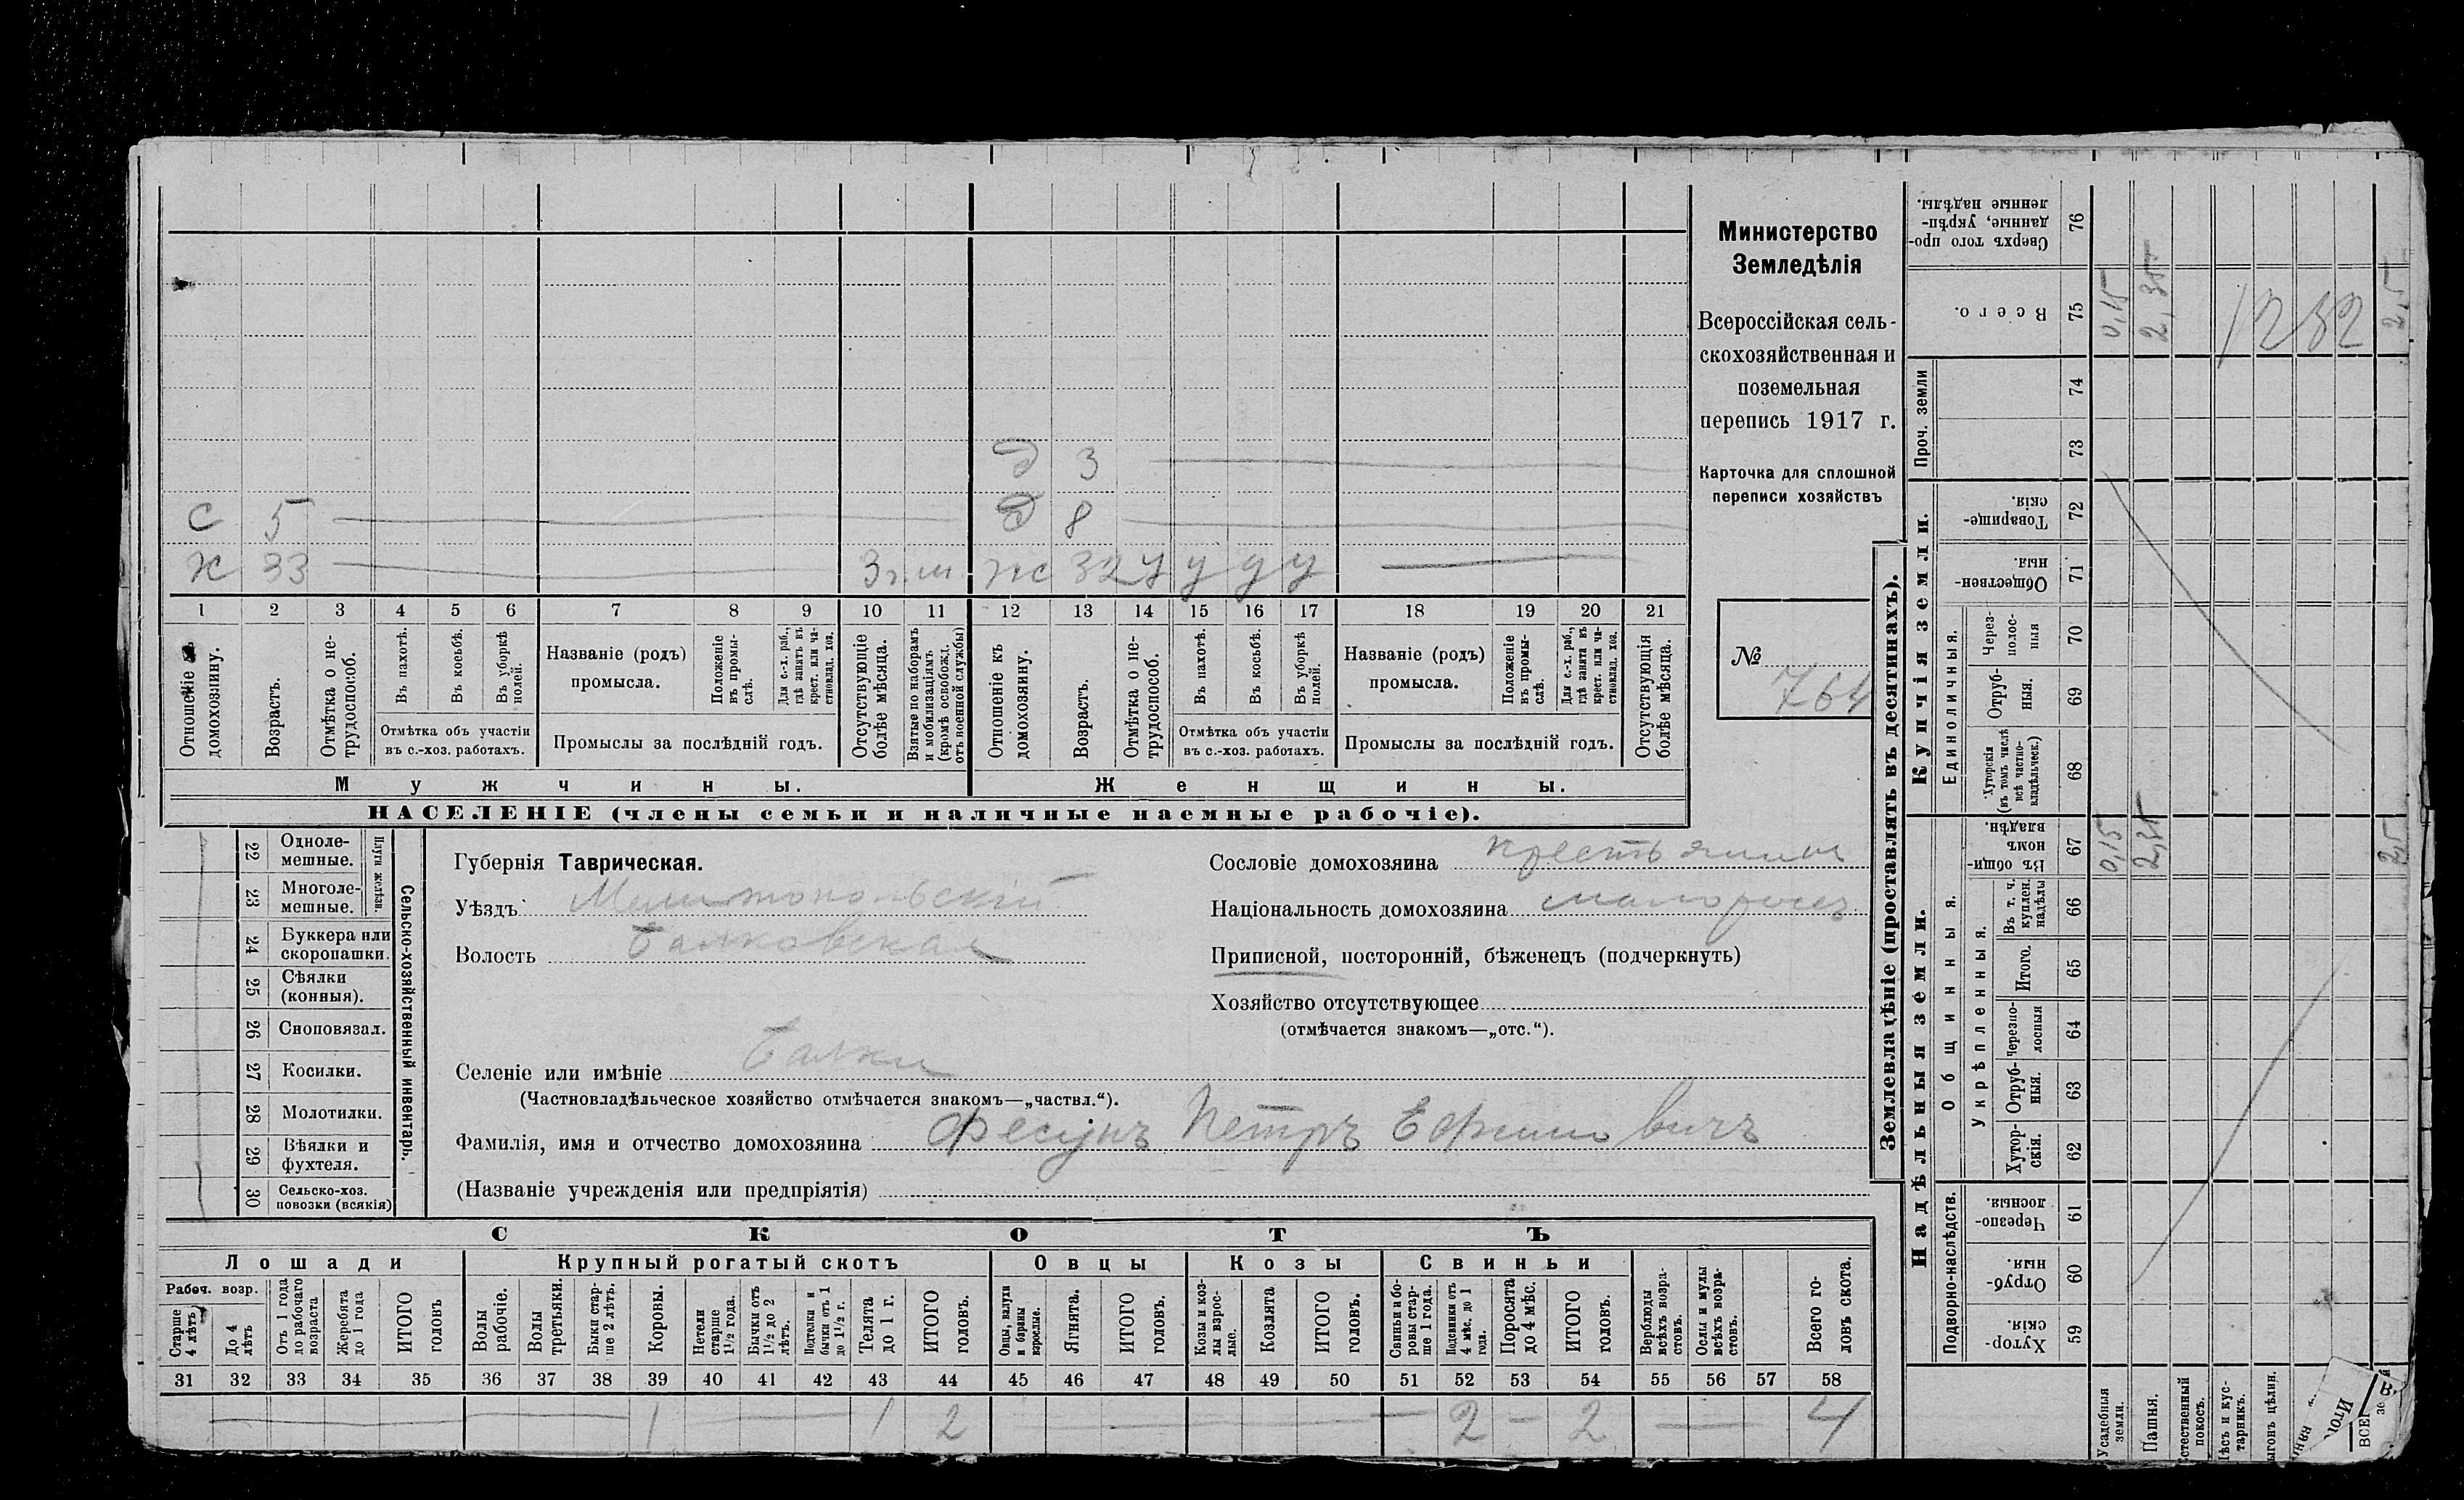 Министерство
Земледѣлія
Всероссійская сель-
скохозяйственная и
поземельная
перепись 1917 г.
Карточка для сплошной
переписи хозяйствъ
№ 764
д 3
С 5 д 8
Х 33 Зп.ш. ж 32 у у у у
1 2 3 4 5 6 7 8 9 10 11 12 13 14 15 16 17 18 19 20 21
Отношеніе къ домохозяину.
Возрастъ.
Отмѣтка о не-
трудоспособ.
Въ пахотѣ.
Въ косьбѣ.
Въ уборкѣ
полей.
Отмѣтка объ участіи
въ с.-хоз. работахъ.
Названіе (родъ)
промысла.
Положеніе
въ промы-
слѣ.
Для с.-х. раб.,
гдѣ занятъ въ
крест. или ча-
стновлад. хоз.
Промыслы за послѣдній годъ.
Отсутствующіе
болѣе мѣсяца.
Взятые по наборамъ
и мобилизаціямъ
(кромѣ освобожд.
отъ военной службы)
Отношеніе къ
домохозяину.
Возрастъ.
Отмѣтка о не-
трудоспособ.
Въ пахотѣ.
Въ косьбѣ.
Въ уборкѣ
полей.
Отмѣтка объ участіи
въ с.-хоз. работахъ.
Названіе (родъ)
промысла.
Положеніе
въ промы-
слѣ.
Для с.-х. раб.,
гдѣ занята въ
крест. или ча-
стновлад. хоз.
Промыслы за послѣдній годъ.
Отсутствующія
болѣе мѣсяца.
Мужчины.
Женщины.
НАСЕЛЕНІЕ (члены семьи и наличные наемные рабочіе).
22 Одноле-
мешные.
23 Многоле-
мешные.
Плуги желѣзн.
24 Буккера или
скоропашки.
25 Сѣялки
(конныя).
26 Сноповязал.
27 Косилки.
28 Молотилки.
29 Вѣялки и
фухтеля.
30 Сельско-хоз.
повозки (всякія)
Сельско-хозяйственный инвентарь.
Губернія Таврическая.
Уѣздъ Мелитопольскій
Волость Балковская
Селеніе или имѣніе Балки
(Частновладѣльческое хозяйство отмѣчается знакомъ—„частвл.“).
Фамилія, имя и отчество домохозяина Фесунъ Петръ Ефимовичъ
(Названіе учрежденія или предпріятія)
Сословіе домохозяина крестьянинъ
Національность домохозяина малороссъ
Приписной, посторонній, бѣженецъ (подчеркнуть)
Хозяйство отсутствующее
(отмѣчается знакомъ—„отс.“).
СКОТЪ
Лошади
Крупный рогатый скотъ
Овцы
Козы
Свиньи
Рабоч. возр.
Старше
4 лѣтъ
До 4
лѣтъ
Отъ 1 года
до рабочаго
возраста
Жеребята
до 1 года
ИТОГО
головъ
Волы
рабочіе.
Волы
третьяки.
Быки стар-
ше 2 лѣтъ.
Коровы.
Нетели
старше
1½ года.
Бычки отъ
1½ до 2
лѣтъ.
Подтелки и
бычки отъ 1
до 1½ г.
Телята
до 1 г.
ИТОГО
головъ.
Овцы, валухи
и бараны
взрослые.
Ягнята.
ИТОГО
головъ.
Козы и коз-
лы взрос-
лые.
Козлята
ИТОГО
головъ.
Свиньи и бо-
ровы стар-
ше 1 года.
Подсвинки отъ
4 мѣс. до 1
года.
Поросята
до 4 мѣс.
ИТОГО
головъ.
Верблюды
всѣхъ возра-
стовъ.
Ослы и мулы
всѣхъ возра-
стовъ.
Всего го-
ловъ скота.
31 32 33 34 35 36 37 38 39 40 41 42 43 44 45 46 47 48 49 50 51 52 53 54 55 56 57 58
1 1 2 2 – 2 4
Землевладѣніе (проставлять въ десятинахъ).
Надѣльныя земли.
Купчія земли.
Проч. земли
Подворно-наслѣдств.
Общинныя.
Укрѣпленныя.
Единоличныя.
Сверхъ того про-
данные, укрѣп-
ленные надѣлы. 76
Всего. 75 0,15 2,35 2,5
1282
74
73
Товарище-
скія. 72
Обществен-
ныя. 71
Через-
полос-
ныя 70
Отруб-
ныя. 69
Хуторскія
(въ томъ числѣ
всѣ частно-
владѣльческ.) 68
Въ общи-
номъ
владѣн. 67 0,15 2,35 2,5
Въ т. ч.
куплен.
надѣлы 66
Итого. 65
Черезпо-
лосныя 64
Отруб-
ныя. 63
Хутор-
скія. 62
Черезпо-
лосныя. 61
Отруб-
ныя. 60
Хутор-
скія. 59
Усадебныя
земли.
Пашня.
Естественный
покосъ.
Лѣсъ и кус-
тарникъ.
Выгонъ цѣлин.
Итог
ВСЕГ